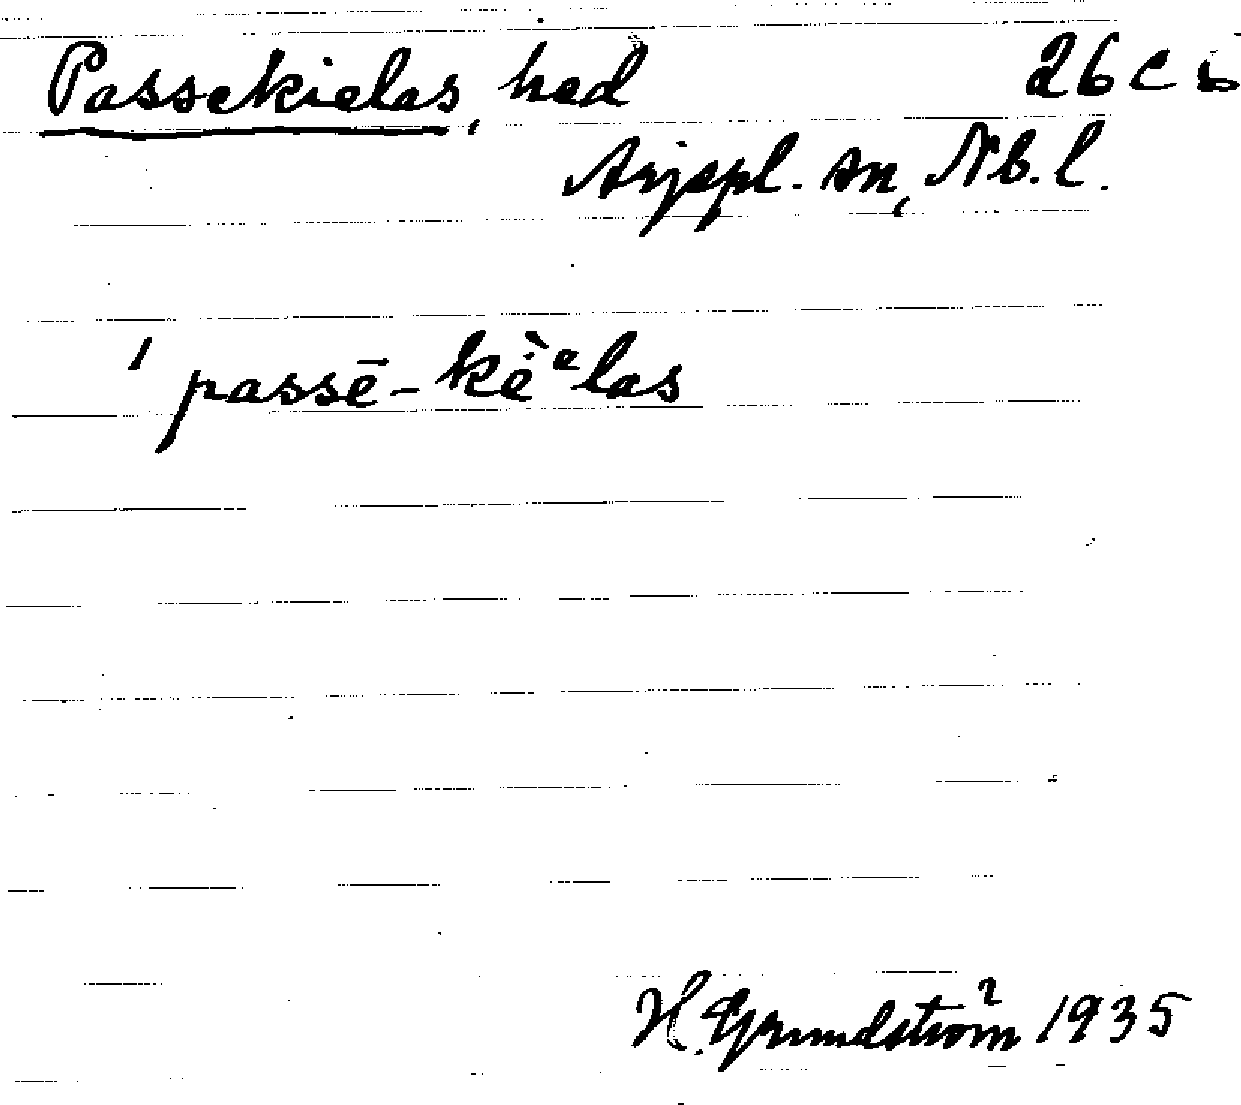 Passekielas, hed 26 c b
Arjepl. sn, Nb. l.
ˈpassē-kè̱ᵉlas
H. Grundström 1935